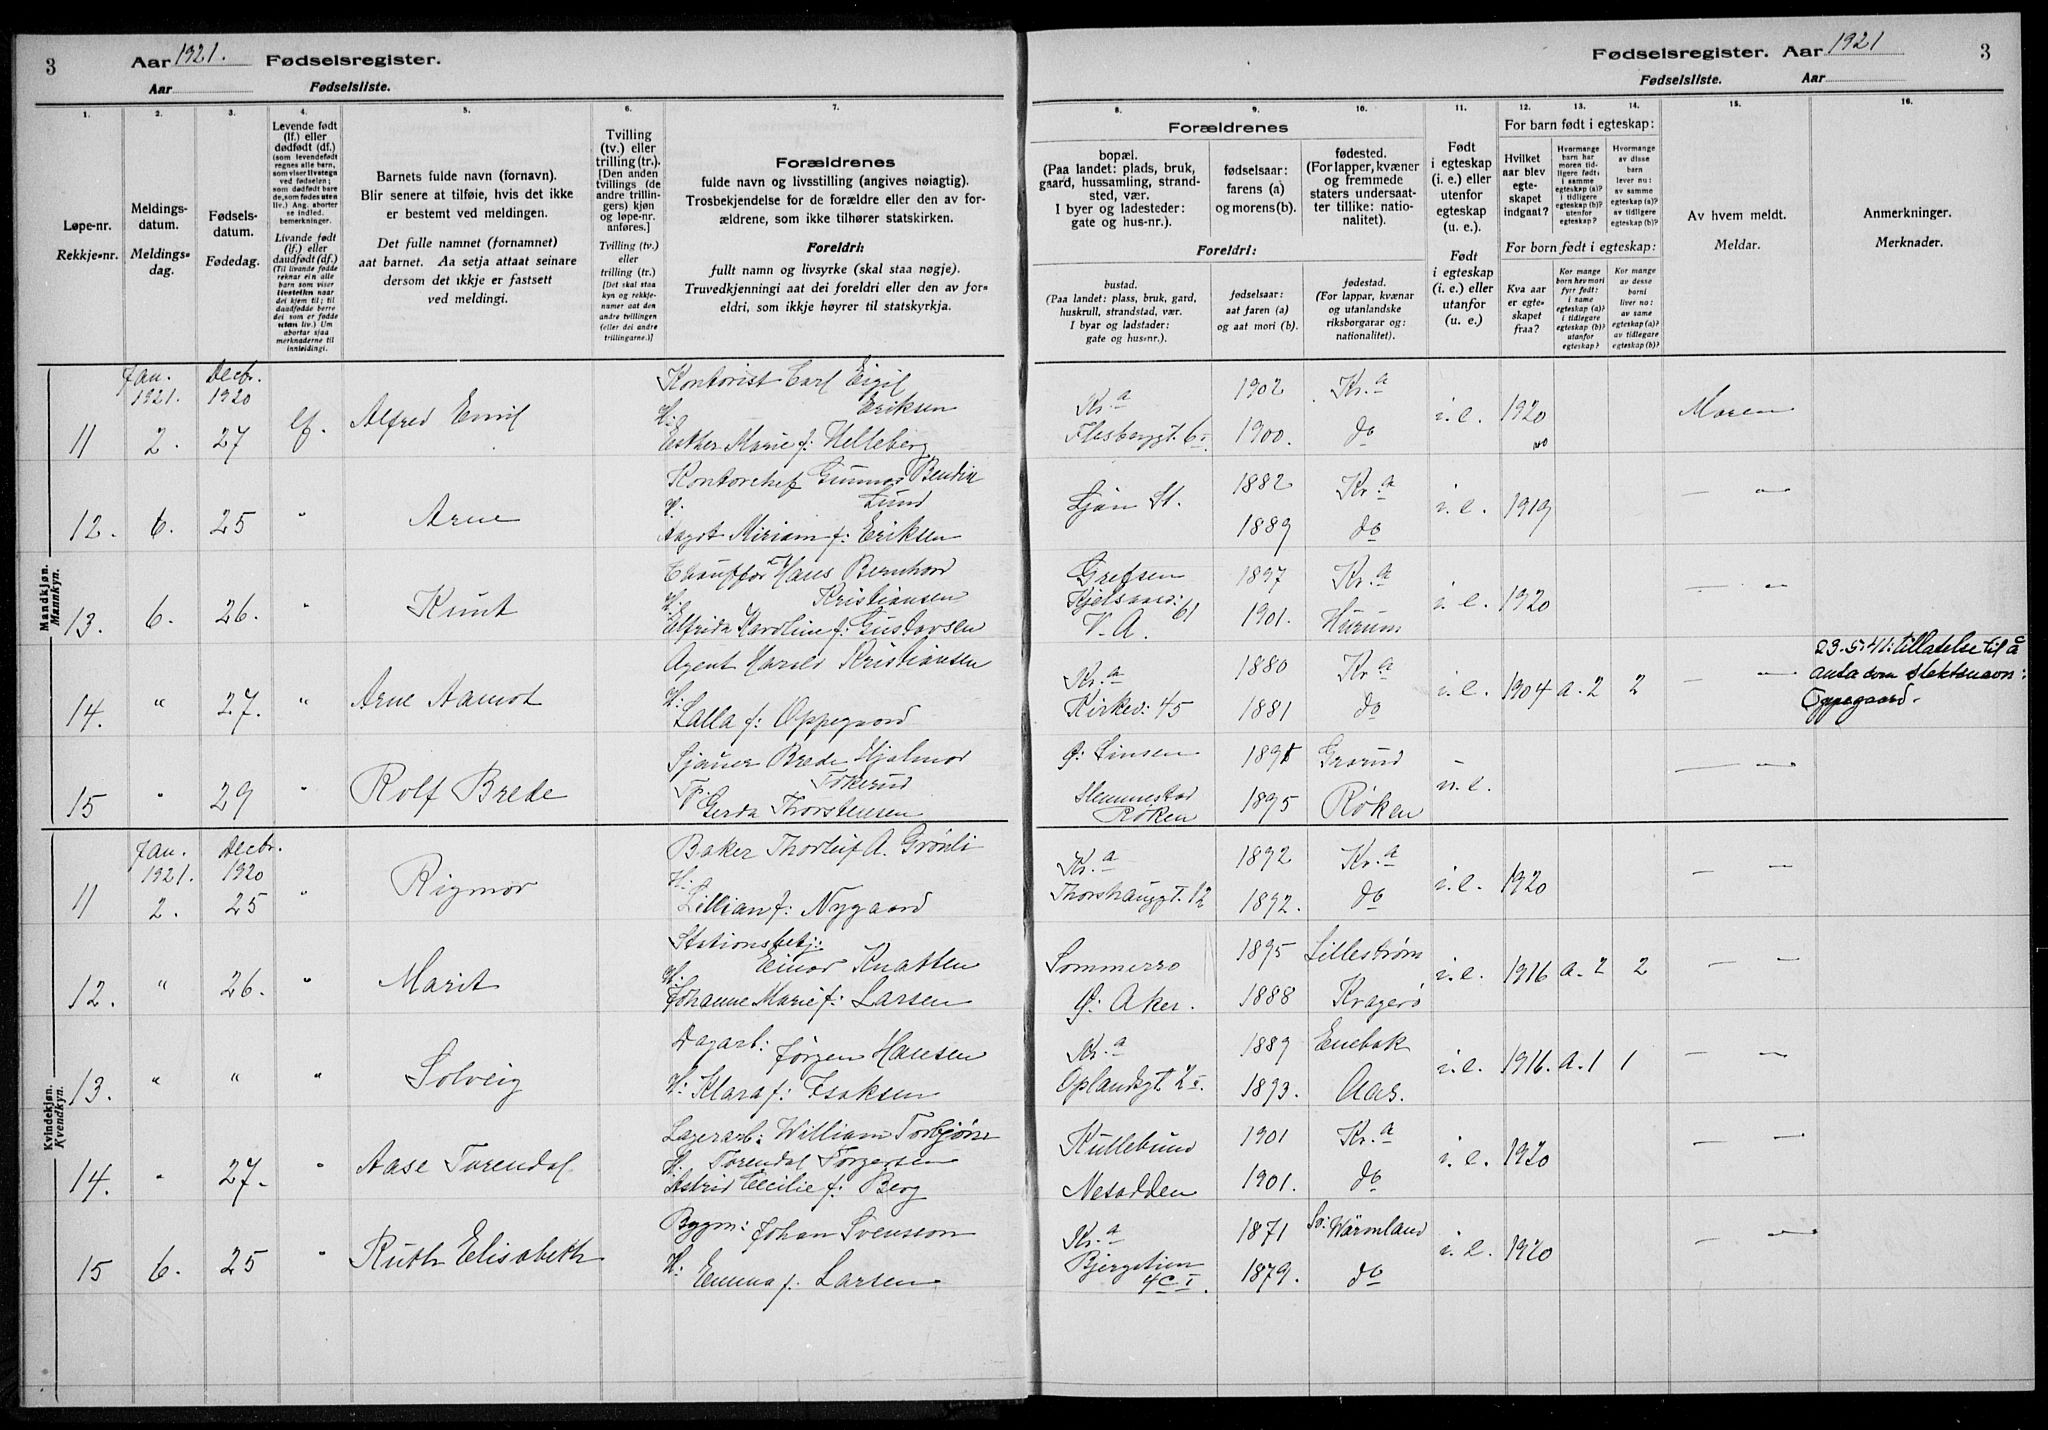 3 Aar 1921. Fødselsregister.
Aar Fødselsliste.
Fødselsregister. Aar 1921 3
Fødselsliste. Aar
1. 2. 3. 4. 5. 6. 7.
8. 9. 10. 11. 12. 13. 14. 15. 16.
Løpe-nr.
Rekkje-nr.
Meldings-
datum.
Meldings-
dag.
Fødsels-
datum.
Fødedag.
Levende født
(lf.) eller
dødfødt (df.)
(som levendefødt
regnes alle barn,
som viser livstegn
ved fødselen;
som dødfødt bare
de, som fødes uten
liv.) Ang. aborter
se indled.
bemerkninger.
Livande født
(lf.) eller
daudfødt (df.)
(Til livande fødde
reknar ein alle
barn som viser
livsteikn naar
dei kjem til; til
daudfødde berre
dei som er fødde
utan liv.) Um
abortar sjaa
merknaderne til
innleidingi.
Barnets fulde navn (fornavn).
Blir senere at tilføie, hvis det ikke
er bestemt ved meldingen.
Det fulle namnet (fornamnet)
aat barnet. Aa setja attaat seinare
dersom det ikkje er fastsett
ved meldingi.
Tvilling
(tv.) eller
trilling (tr.).
[Den anden
tvillings (de
andre trillin-
gers) kjøn
og løpe-nr.
anføres.]
Tvilling (tv.)
eller
trilling (tr.)
[Det skal staa
kyn og rekkje-
nummer aat den
andre tvillingen
(eller dei andre
trillingarne.)]
Forældrenes
fulde navn og livsstilling (angives nøiagtig).
Trosbekjendelse for de forældre eller den av for-
ældrene, som ikke tilhører statskirken.
Foreldri:
fullt namn og livsyrke (skal staa nøgje).
Truvedkjenningi aat dei foreldri eller den av for-
eldri, som ikkje høyrer til statskyrkja.
Forældrenes
bopæl.
(Paa landet: plads, bruk,
gaard, hussamling, strand-
sted, vær.
I byer og ladesteder:
gate og hus-nr.).
fødselsaar:
farens (a)
og morens (b).
fødested.
(For lapper, kvæner
og fremmede
staters undersaat-
ter tillike: natio-
nalitet).
Foreldri:
bustad.
(Paa landet: plass, bruk, gard,
huskrull, strandstad, vær.
I byar og ladstader:
gate og hus-nr.).
fødselsaar:
aat faren (a)
og aat mori (b).
fødestad.
(For lappar, kvænar
og utanlandske
riksborgarar og:
nationalitet).
Født
i egteskap
(i. e.) eller
utenfor
egteskap
(u. e.).
Født
i egteskap
(i. e.) eller
utanfor
(u. e.).
For barn født i egteskap:
Hvilket
aar blev
egte-
skapet
indgaat?
Hvormange
barn har
moren tid-
ligere født:
i samme
egteskap (a)?
i tidligere
egteskap (b)?
utenfor
egteskap (c)?
Hvormange
av disse
barn
lever nu:
av samme
egteskap (a)?
av tidligere
egteskap (b)?
For born født i egteskap:
Kva aar
er egte-
skapet
fraa?
Kor mange
born hev mori
fyrr født:
i same
egteskap (a)?
i tidlegare
egteskap (b)?
utanfor
egteskap?
Kor mange
av desse
borni
liver no:
av same
egteskap (a)?
av tidlegare
egteskap (b)?
Av hvem meldt.
Meldar.
Anmerkninger.
Merknader.
Mandkjøn.
Mannkyn.
Jan. Decbr. Kontorist Carl Eigil 1902 Kr.a
1921. 1920 Eriksen Kr.a
11 2. 27 lf. Alfred Emil H: Esther Marie f: Helleberg Flesberggt. 6 1900. do i.e. 1920 Moren
Kontorchef Gunnar Bendix Lund 1882 Kr.a
12. 6. 25 " Arne H. Aagot Miriam f: Eriksen Ljan St. 1889 do i.e. 1919 — " —
Chauffør Hans Bernhard Kristiansen Grefsen 1897 Kr.a
13. 6. 26. " Knut H: Elfrida Karoline f: Gustavsen Kjelsaasv: 61 V. A. 1901. Hurum i.e. 1920 — " —
Agent Harald Kristiansen Kr.a 1880 Kr.a 23-5-41: tillatelse til å
14. " 27. " Arne Aamot H: Lalla f: Oppegaard Kirkev: 45 1881 do i.e. 1904 a. 2 2 — " — anta som slektsnavn:
Oppegaard.
Sjauer Brede Hjalmar Tokerud Ø: Sinsen Grorud
15 " 29 " Rolf Brede F: Gerda Thorstensen Slemmestad Røken 1895 Røken u.e. — " —
Kvindekjøn.
Kvendkyn.
Jan. Decbr. Baker Thorleif A. Grønli 1892 Kr.a
1921. 1920 Kr.a
11 2. 25 " Rigmor H: Lillian f: Nygaard Thorshauggt. 12 1892. do i.e. 1920 — " —
Stationsbetj: Einar Knatten Sommerro 1895 Lillestrøm
12. " 26. " Marit H: Johanne Marie f: Larsen Ø: Aker. 1888 Kragerø i.e. 1916 a. 2 2 — " —
Dagarb: Jørgen Hansen Kr.a 1889 Enebak
13. " " " Solveig H: Klara f: Isaksen Oplandsgt. 2 1893. Aas. i.e. 1916. a. 1 1 — " —
Lagerarb: William Torbjørn Torendal Torgersen Kullebund 1901 Kr.a
14. " 27. " Aase Torendal H. Astrid Cecilie f: Berg Nesodden 1901. do i.e. 1920 — " —
Bygm: Johan Svensson Kr.a 1871 Sv: Wärmland
15 6. 25 " Ruth Elisabeth H: Emma f. Larsen Bjergstien 4c I. 1879. do i.e. 1920 — " —